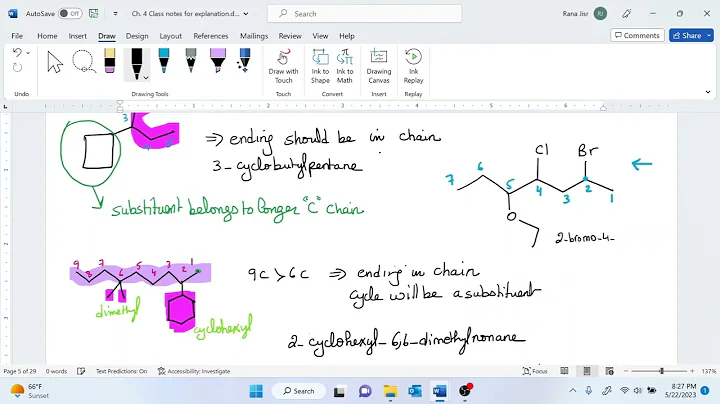 AutoSave Off Ch. 4 Class notes for explanation.d... Search Rana Jisr RJ
File Home Insert Draw Design Layout References Mailings Review View Help Comments Share
Draw with Touch Ink to Shape Ink to Math Drawing Canvas Ink Replay
Drawing Tools Touch Convert Insert Replay
3
⇒ ending should be in chain
3-cyclobutylpentane
substituent belongs to longer "C" chain
Cl Br
7 6 5 4 3 2 1
O
2-bromo-4-
9 8 7 6 5 4 3 2 1
dimethyl
cyclohexyl
9C > 6C ⇒ ending in chain
cycle will be a substituent
2-cyclohexyl-6,6-dimethylnonane
Page 5 of 29 0 words Text Predictions: On Accessibility: Investigate Focus 137%
66°F
Sunset
Search
8:27 PM
5/22/2023